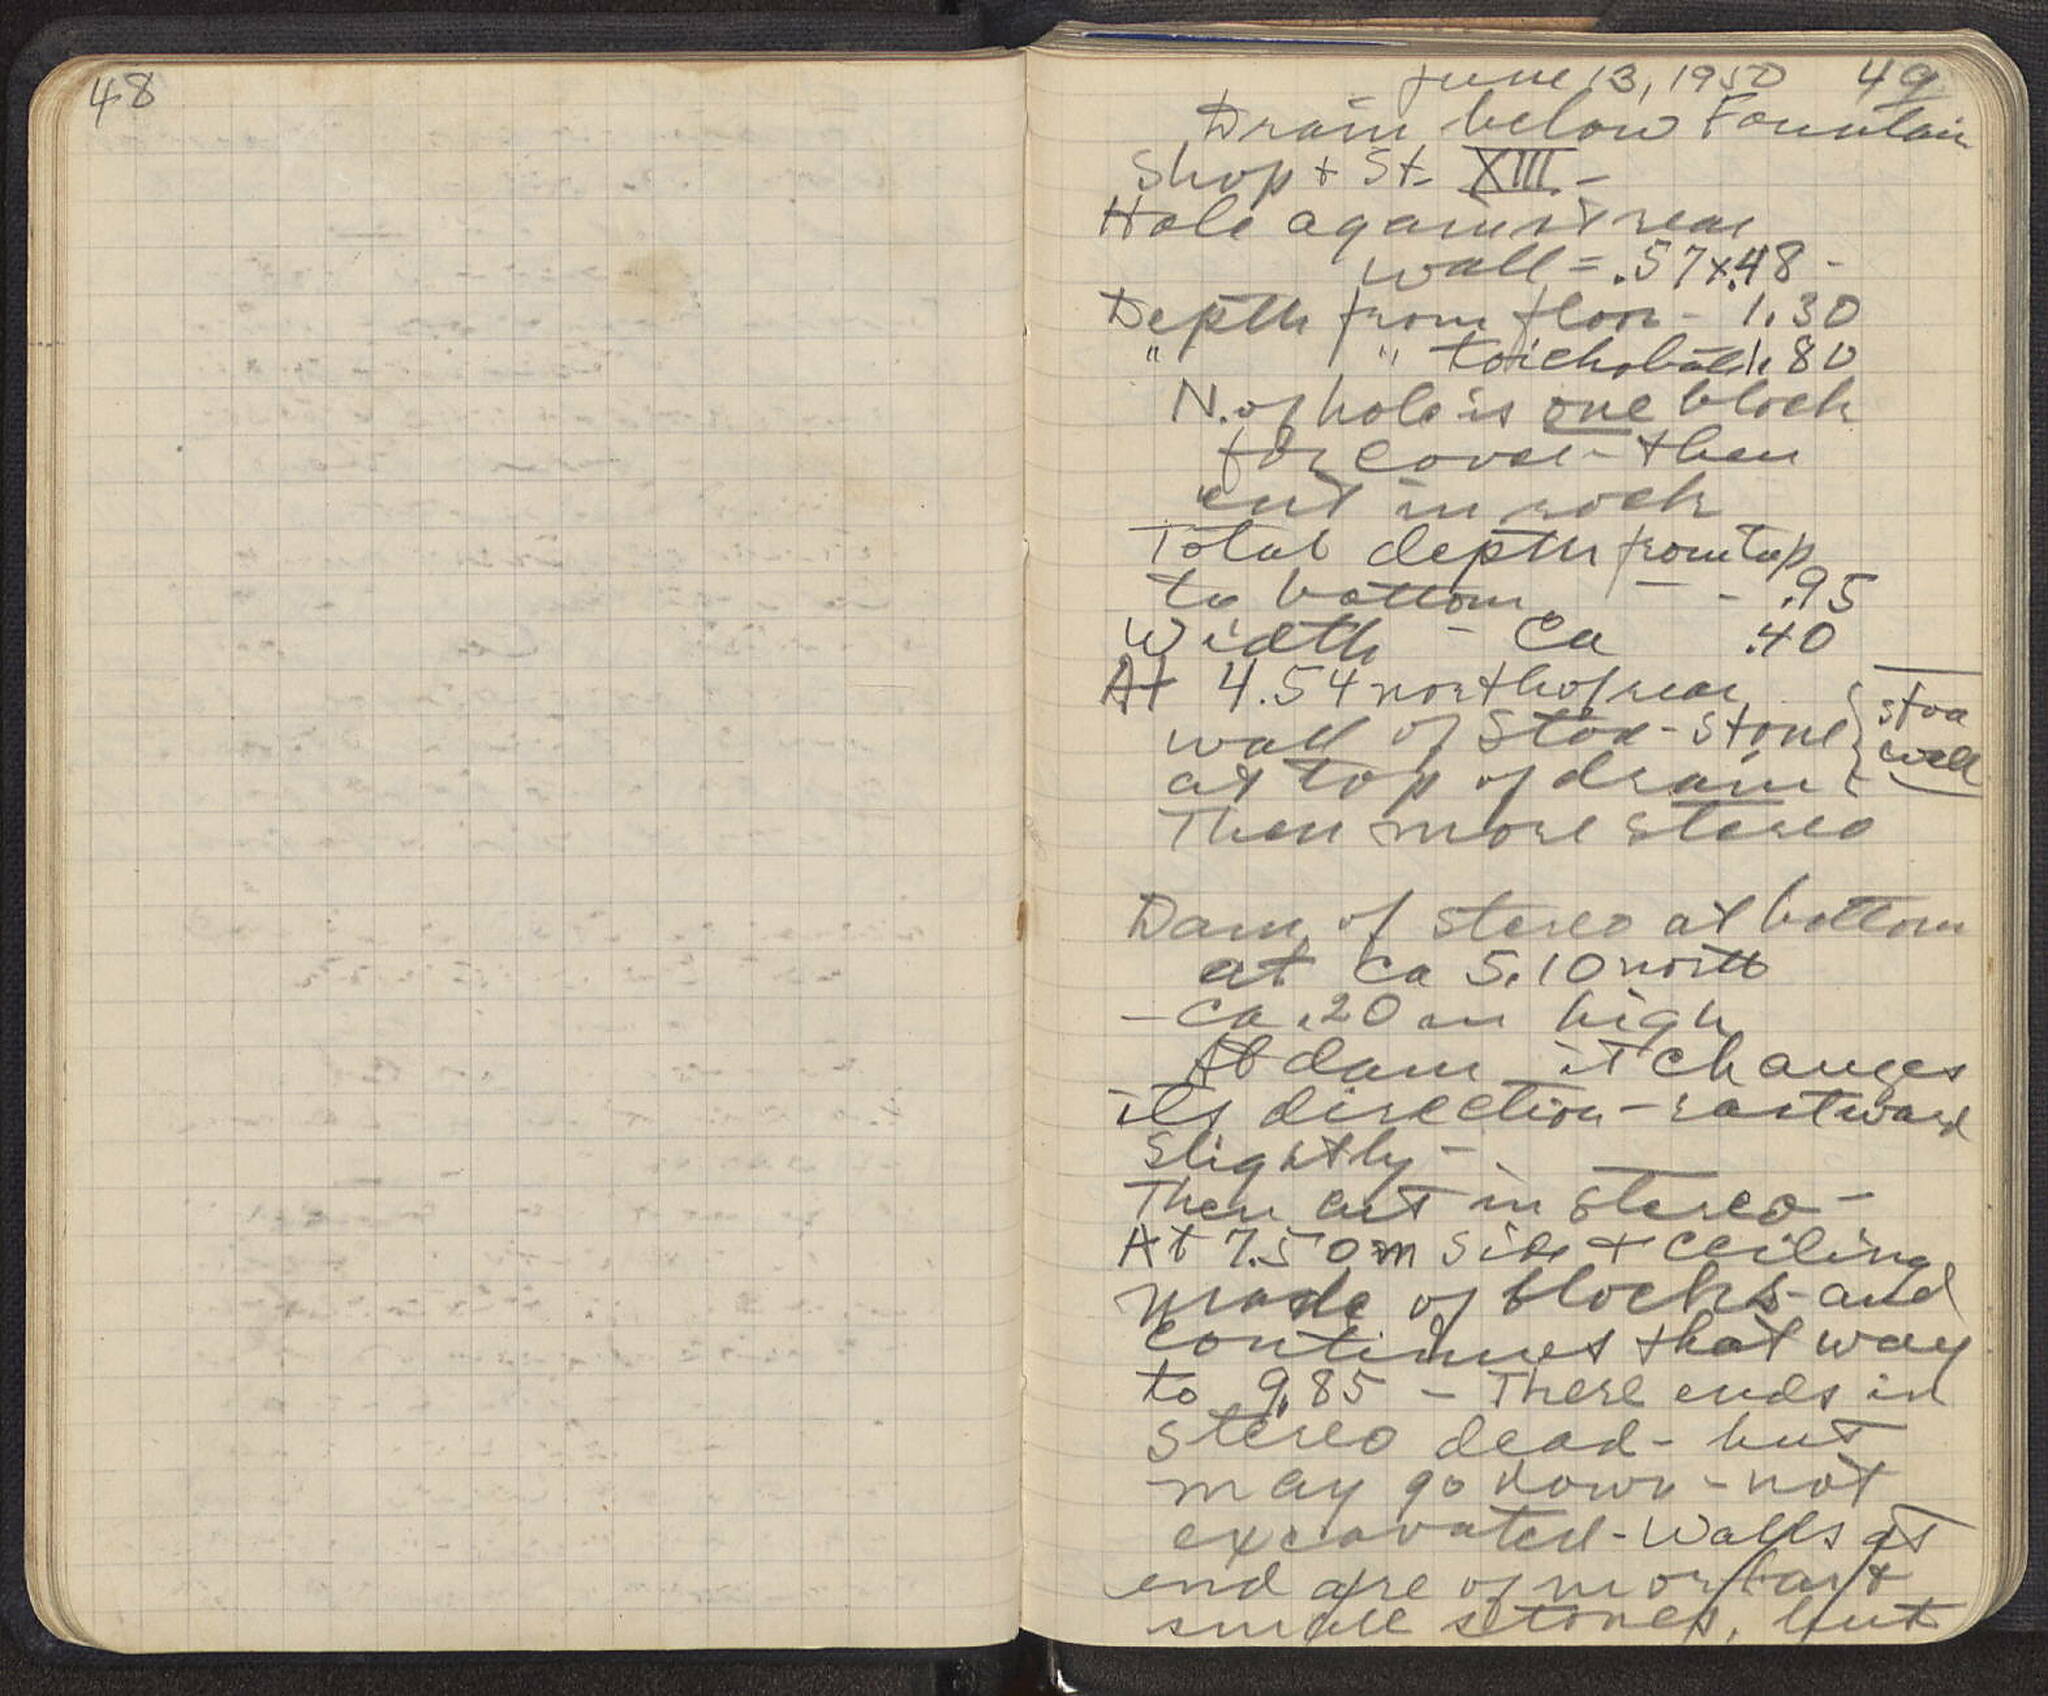 48
June 13, 1950 49
Drain below Fountain
Shop + St. XIII -
Hole against rear
wall = .57 x .48 -
Depth from floor - 1.30
" " toichobate 1.80
N. of hole is one block
for cover - then
cut in rock
Total depth from top
to bottom - - .95
Width - Ca .40
At 4.54 north of rear
wall of Stoa - stone
at top of drain
stoa
wall
Then more stereo
Dam of stereo at bottom
at ca 5.10 north
- ca .20 m high
At dam it changes
its direction - eastward
slightly -
Then cut in stereo -
At 7.50 m side + ceiling
made of blocks - and
continues that way
to 9.85 - There ends in
stereo dead - but
may go down - not
excavated - Walls at
end are of mortar +
small stones, but